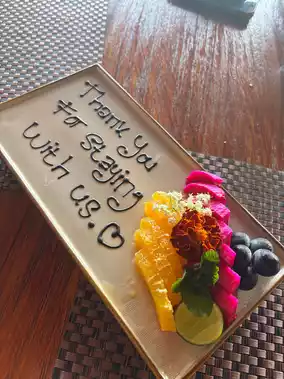 Thank You
For Staying
With us.